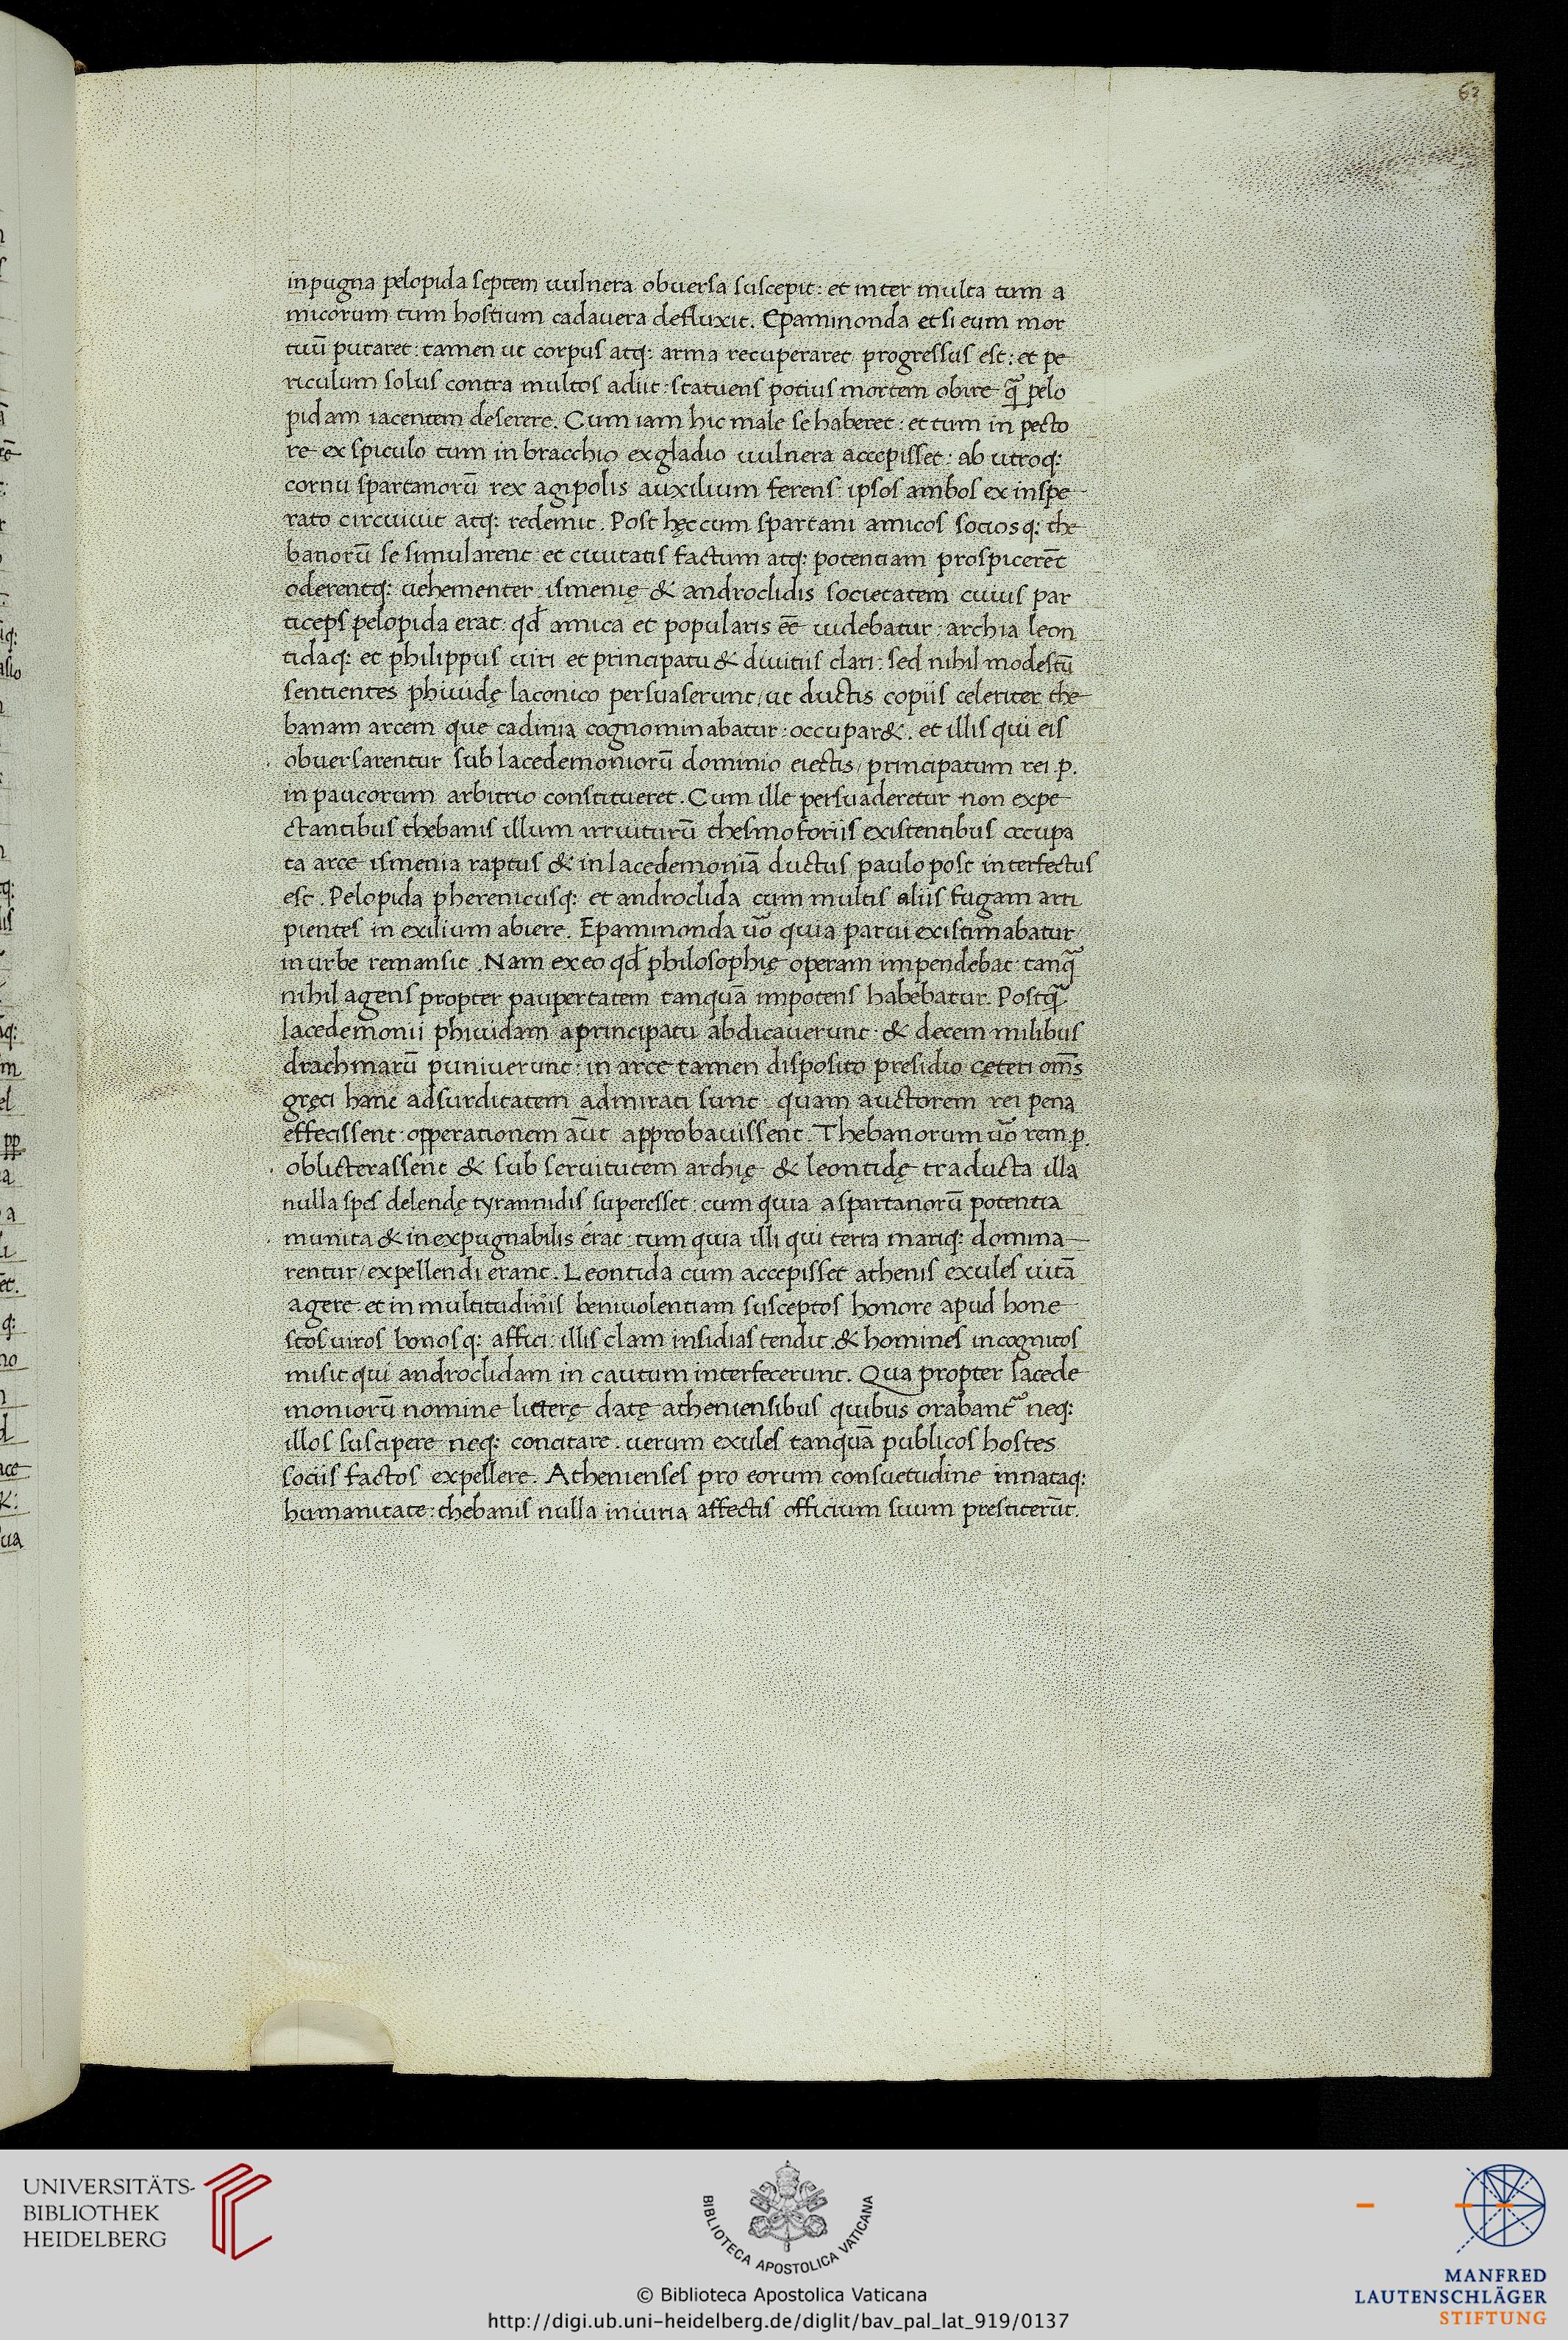 63
inpugna pelopida septem uulnera obuersa suscepit: et inter multa tum a
micorum tum hostium cadauera defluxit. Epaminonda etsi eum mor
tuū putaret: tamen ut corpus atq: arma recuperaret progressus est: et pe
riculum solus contra multos adiit: statuens potius mortem obire q̄ pelo
pidam iacentem deserere. Cum iam hic male se haberet: et tum in pecto
re ex spiculo tum in bracchio ex gladio uulnera accepisset: ab utroq:
cornu spartanorū rex agipolis auxilium ferens: ipsos ambos ex inspe
rato circuiuit atq: redemit. Post hęc cum spartani amicos sociosq: the
banorū se simularent: et ciuitatis factum atq: potentiam prospicerēt
oderentq: uehementer ismenię & androclidis societatem cuius par
ticeps pelopida erat: qd̄ amica et popularis eē uidebatur: archia leon
tidaq: et philippus uiri et principatu & diuitiis clari: sed nihil modestū
sentientes phiuidę laconico persuaserunt, ut ductis copiis celeriter the
banam arcem que cadinia cognominabatur: occupar&. et illis qui eis
obuersarentur sub lacedemoniorū dominio eiectis, principatum rei p.
in paucorum arbitrio constitueret. Cum ille persuaderetur non expe
ctantibus thebanis illum irruiturū thesmoforiis existentibus occupa
ta arce ismenia raptus & in lacedemoniā ductus paulo post interfectus
est. Pelopida pherenicusq: et androclida cum multis aliis fugam arri
pientes in exilium abiere. Epaminonda ūo quia parui existimabatur,
in urbe remansit. Nam ex eo qd̄ philosophię operam impendebat: tanq̄
nihil agens propter paupertatem tanquā impotens habebatur. Postq̄
lacedemonii phiuidam a principatu abdicauerunt: & decem milibus
drachmarū puniuerunt: in arce tamen disposito presidio cęteri om̄s
gręci hanc adsurditatem admirati sunt quam auctorem rei pena
effecissent: opperationem aūt approbauissent. Thebanorum ūo rem p.
oblicterassent & sub seruitutem archię & leontidę traducta illa
nulla spes delendę tyrannidis superesset: cum quia a spartanorū potentia
munita & inexpugnabilis erat: tum quia illi qui terra mariq: domina
rentur, expellendi erant. Leontida cum accepisset athenis exules uitā
agere: et in multitudinis beniuolentiam susceptos honore apud hone
stos uiros bonosq: affici: illis clam insidias tendit & homines incognitos
misit qui androclidam in cautum interfecerunt. Qua propter lacede
moniorū nomine litterę datę atheniensibus quibus orabant̄ neq:
illos suscipere neq: concitare. uerum exules tanquā publicos hostes
sociis factos expellere. Athenienses pro eorum consuetudine innataq:
humanitate: thebanis nulla iniuria affectis officium suum prestiterūt.
UNIVERSITÄTS-
BIBLIOTHEK
HEIDELBERG
BIBLIOTECA APOSTOLICA VATICANA
© Biblioteca Apostolica Vaticana
http://digi.ub.uni-heidelberg.de/diglit/bav_pal_lat_919/0137
MANFRED
LAUTENSCHLÄGER
STIFTUNG